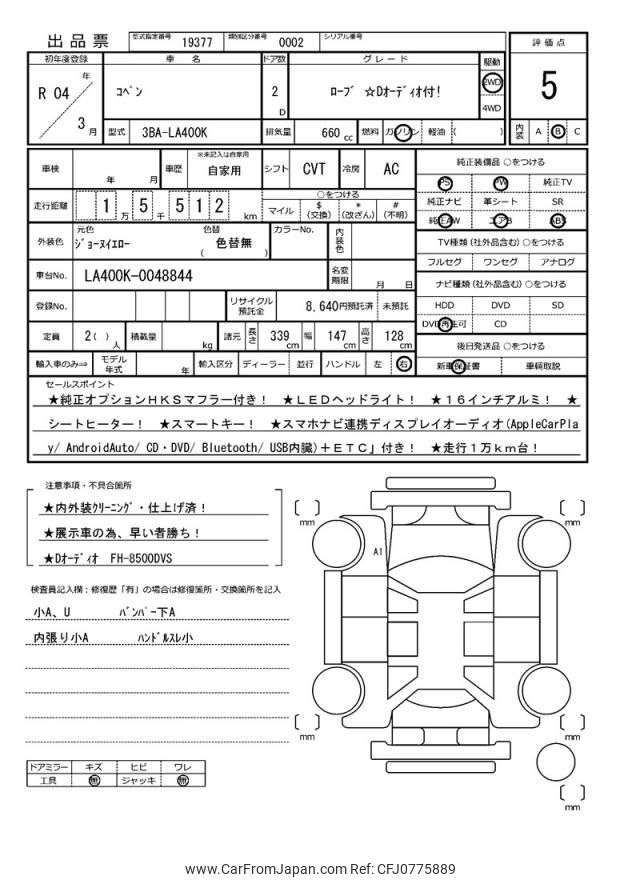 出品票
型式指定番号 19377 類別区分番号 0002 シリアル番号
評価点
5
内装 A B C
初年度登録 車名 ドア数 グレード 駆動
R 04 年 3 月
コペン
2 D
ローブ ☆Dオーディオ付!
2WD
4WD
型式 3BA-LA400K 排気量 660 cc 燃料 ガソリン 軽油 ( )
車検 年 月 車歴 ※未記入は自家用 自家用 シフト CVT 冷房 AC
走行距離 1 万 5 千 5 1 2 km
○をつける
マイル $ (交換) * (改ざん) # (不明)
外装色 元色 ジョーヌイエロー 色替 色替無 ( ) カラーNo. 内装色
車台No. LA400K-0048844 名変期限 月 日
登録No. リサイクル預託金 8,640円預託済 未預託
定員 2( )人 積載量 kg 諸元 長さ 339 cm 幅 147 cm 高さ 128 cm
輸入車のみ⇒ モデル年式 年 輸入区分 ディーラー 並行 ハンドル 左 右
純正装備品 ○をつける
PS PW 純正TV
純正ナビ 革シート SR
純正AW エアB ABS
TV種類 (社外品含む) ○をつける
フルセグ ワンセグ アナログ
ナビ種類 (社外品含む) ○をつける
HDD DVD SD
DVD再生可 CD
後日発送品 ○をつける
新車保証書 車輌取説
セールスポイント
★純正オプションHKSマフラー付き! ★LEDヘッドライト! ★16インチアルミ! ★
シートヒーター! ★スマートキー! ★スマホナビ連携ディスプレイオーディオ(AppleCarPla
y/ AndroidAuto/ CD・DVD/ Bluetooth/ USB内臓)+ETC」付き! ★走行1万km台!
注意事項・不具合箇所
★内外装クリーニング・仕上げ済!
★展示車の為、早い者勝ち!
★Dオーディオ FH-8500DVS
検査員記入欄:修復歴「有」の場合は修復箇所・交換箇所を記入
小A、U バンパー下A
内張り小A ハンドルスレ小
ドアミラー キズ ヒビ ワレ
工具 無 ジャッキ 無
A1
mm
mm
mm
mm
mm
www.CarFromJapan.com Ref: CFJ0775889